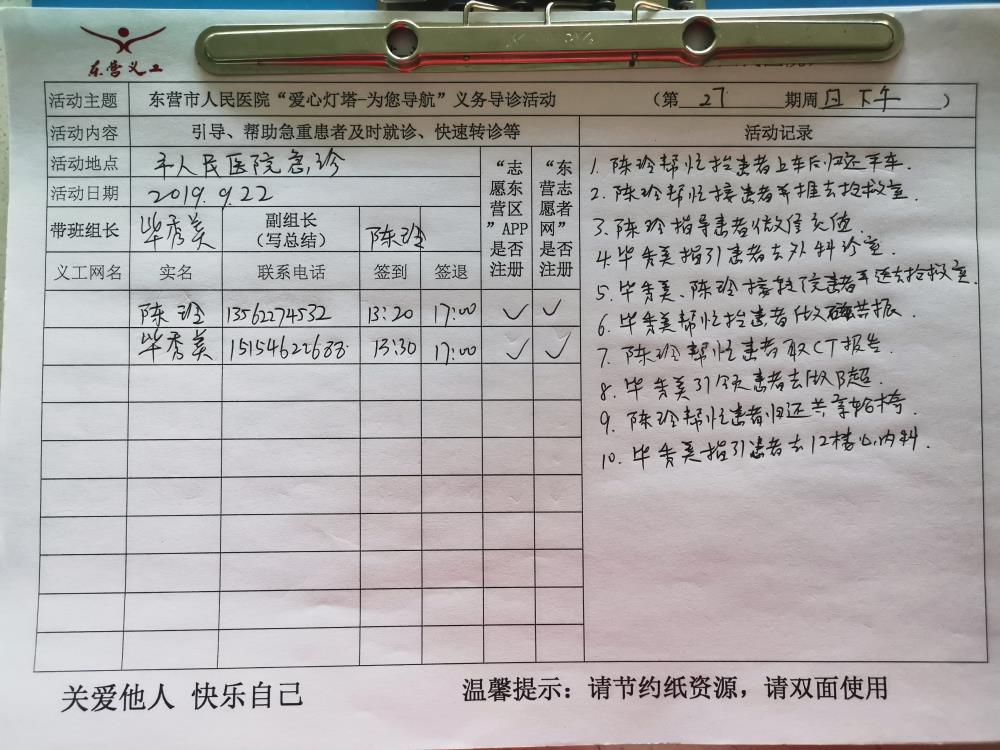 东营义工
活动主题 东营市人民医院“爱心灯塔-为您导航”义务导诊活动 （第 27 期周日下午 ）
活动内容 引导、帮助急重患者及时就诊、快速转诊等 活动记录
活动地点 市人民医院急诊
活动日期 2019.9.22
带班组长 毕秀美 副组长（写总结） 陈玲
“志愿东营区”APP是否注册
“东营志愿者网”是否注册
义工网名 实名 联系电话 签到 签退
陈玲 13562274532 13:20 17:00 ✓ ✓
毕秀美 15154622688 13:30 17:00 ✓ ✓
1. 陈玲帮忙抬患者上车后归还平车.
2. 陈玲帮忙接患者并推去抢救室.
3. 陈玲指导患者微信充值
4. 毕秀美指引患者去外科诊室.
5. 毕秀美、陈玲接转院患者并送去抢救室.
6. 毕秀美帮忙抬患者做磁共振.
7. 陈玲帮忙患者取CT报告.
8. 毕秀美引领患者去做B超.
9. 陈玲帮忙患者归还共享轮椅.
10. 毕秀美指引患者去12楼心内科.
关爱他人 快乐自己
温馨提示：请节约纸资源，请双面使用